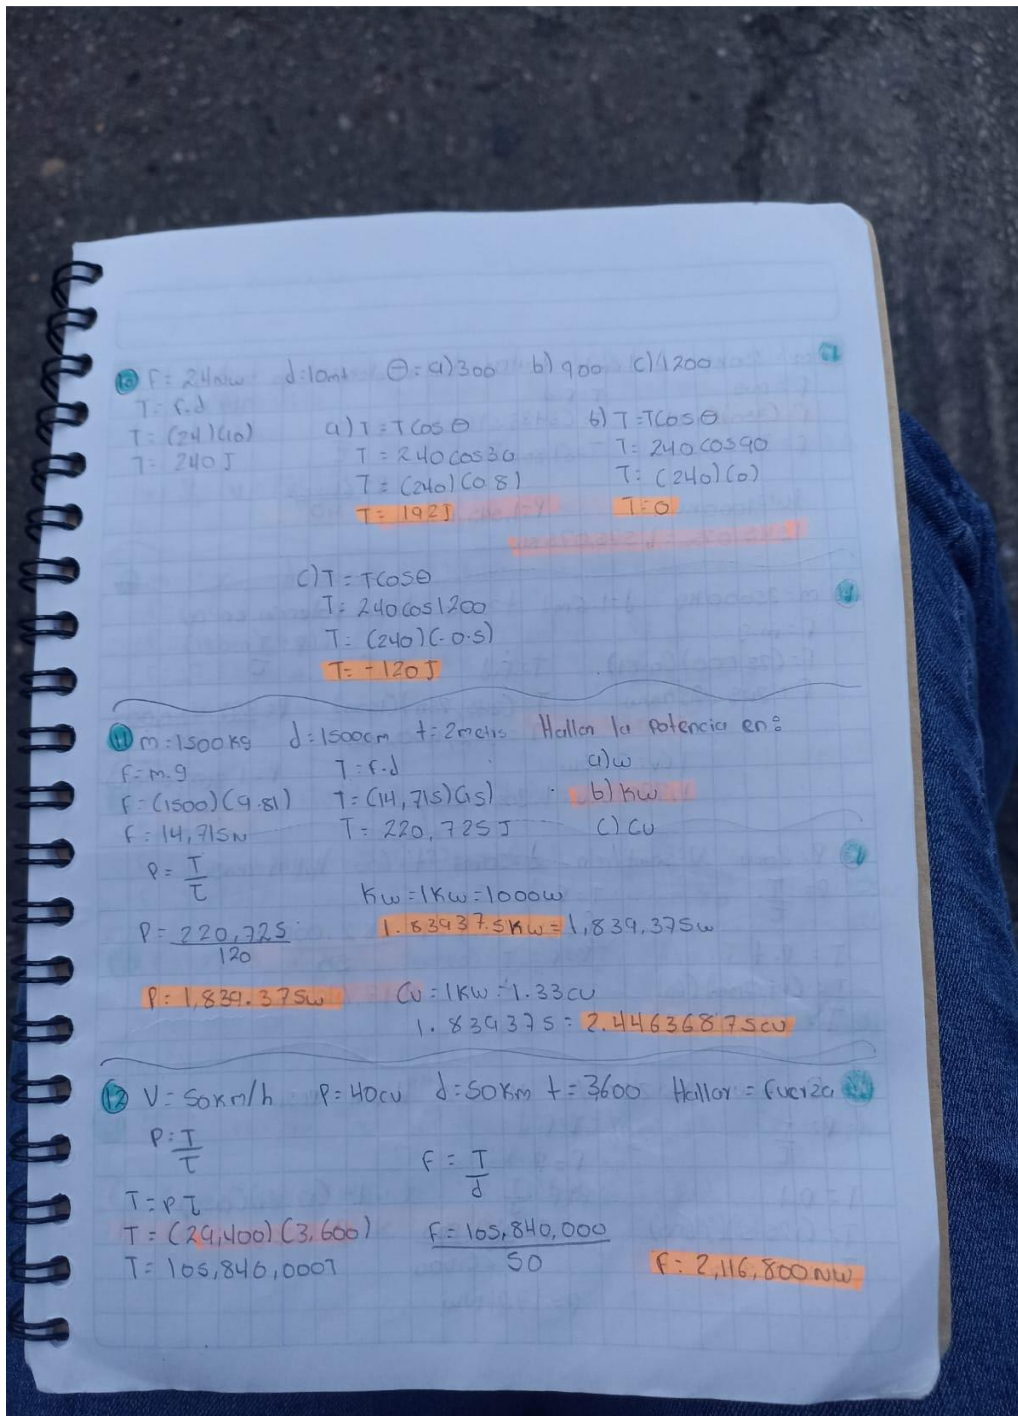 10 F= 24Nw d=10mt θ= a)300 b)900 c)1200
T= F.d
T= (24)(10)
T= 240J
a) T=TCosθ
T= 240cos30
T= (240)(0.8)
T= 192J
b) T=TCosθ
T= 240cos90
T= (240)(0)
T=0
C) T=TCosθ
T= 240cos1200
T= (240)(-0.5)
T= -120J
11 m=1500kg d=1500cm t=2metis Hallar la potencia en:
F=m.g
F=(1500)(9.81)
F= 14,715N
T=F.d
T=(14,715)(15)
T= 220,725J
a)w
b) Kw
C) Cu
P= T
T
P= 220,725
120
P= 1,839.375w
Kw=1Kw=1000w
1.839375Kw=1,839,375w
Cu=1Kw=1.33cu
1.839375= 2.44636875cu
12 V= 50km/h P=40cu d=50Km t=3600 Hallar = fuerza
P= T
T
T=PT
T= (29,400)(3,600)
T= 105,840,000J
F= T
d
F= 105,840,000
50
F= 2,116,800NW